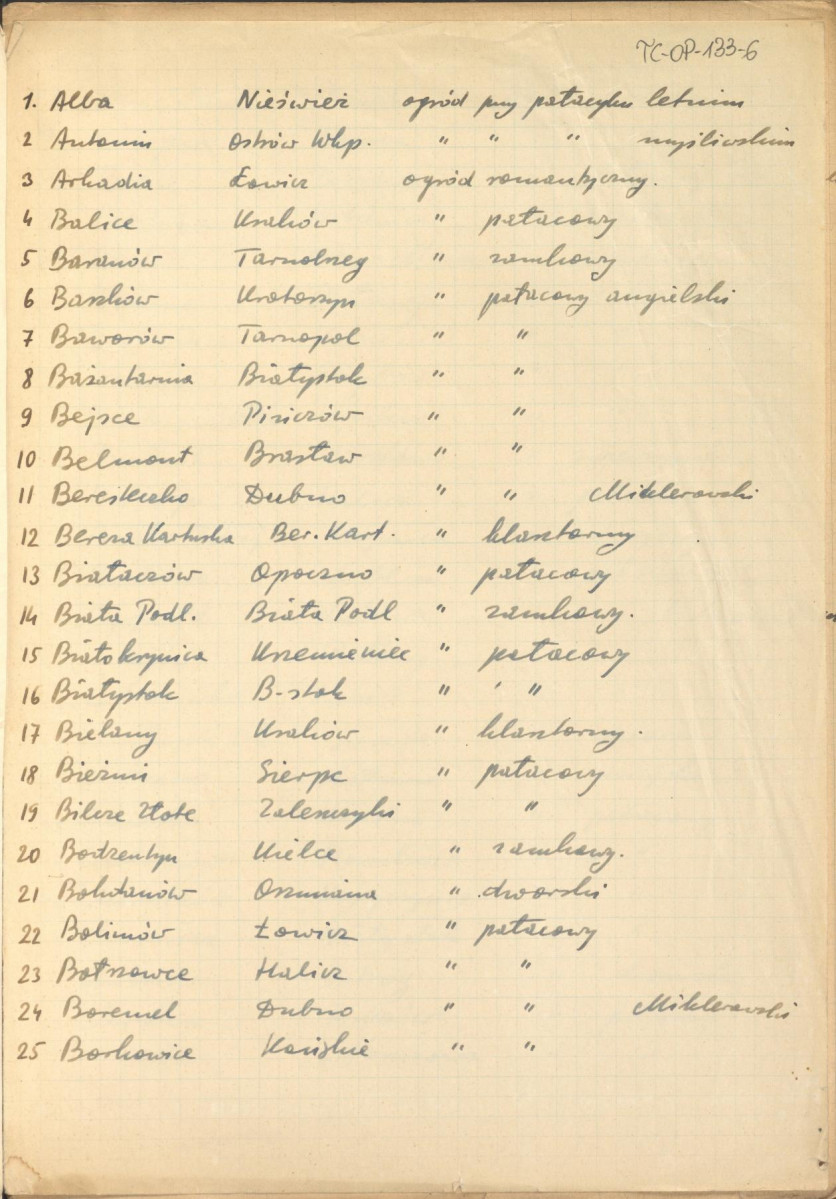 TC-OP-133-6
1. Alba Nieśwież ogród przy pałacyku letnim
2 Antonin Ostrów Wkp. " " " myśliwskim
3 Arkadia Łowicz ogród romantyczny.
4 Balice Kraków " pałacowy
5 Baranów Tarnobrzeg " zamkowy
6 Baszków Krotoszyn " pałacowy angielski
7 Baworów Tarnopol " "
8 Bażantarnia Białystok " "
9 Bejsce Pińczów " "
10 Belmont Brasław " "
11 Beresteczko Dubno " " Miklerowski
12 Bereza Kartuska Ber. Kart. " klasztorny
13 Białaczów Opoczno " pałacowy
14 Biała Podl. Biała Podl " zamkowy.
15 Białokrynica Krzemieniec " pałacowy
16 Białystok B-stok " "
17 Bielany Kraków " klasztorny.
18 Bieżuń Sierpc " pałacowy
19 Bilcze Złote Zaleszczyki " "
20 Bodzentyn Kielce " zamkowy.
21 Bohdanów Oszmiana " dworski
22 Bolimów Łowicz " pałacowy
23 Bołszowce Halicz " "
24 Boremel Dubno " " Miklerowski
25 Borkowice Końskie " "